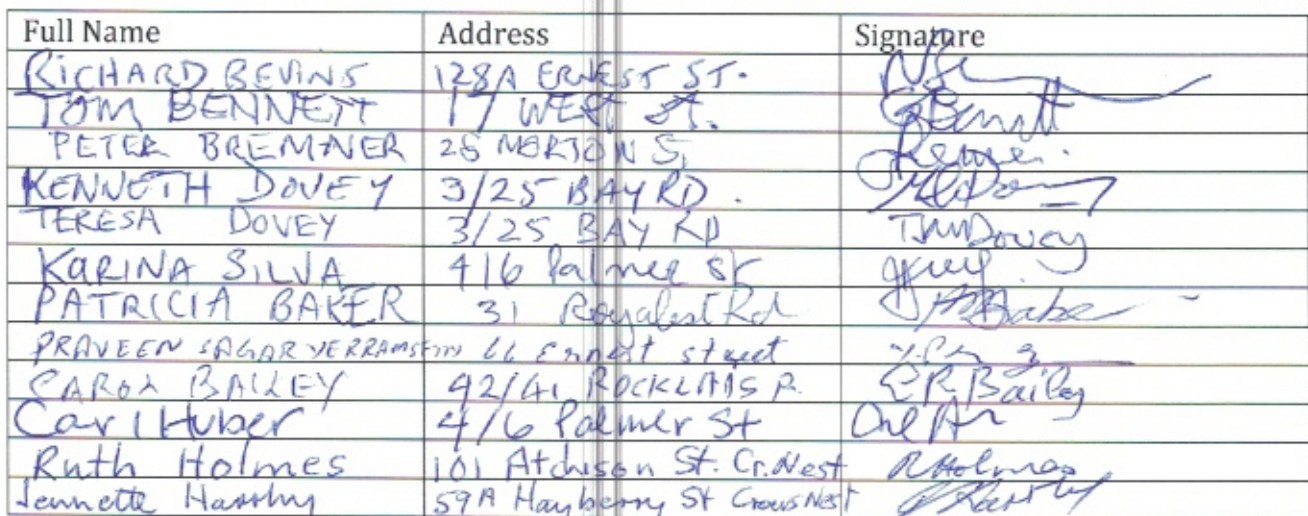 Full Name Address Signature
RICHARD BEVINS 128A ERNEST ST.
TOM BENNETT 17 WEST St. Bennett
PETER BREMNER 25 MORTON S,
KENNETH DOVEY 3/25 BAY RD.
TERESA DOVEY 3/25 BAY RD TMDovey
KARINA SILVA 4/6 Palmer St
PATRICIA BAKER 31 Royalist Rd Baker
PRAVEEN SAGAR 66 Ernest street
CAROL BAILEY 42/41 R. CRBailey
Carl Huber 4/6 Palmer St
Ruth Holmes 101 Atchison St. Cr. Nest RHolmes
Jennette 59A Hayberry St Crows Nest